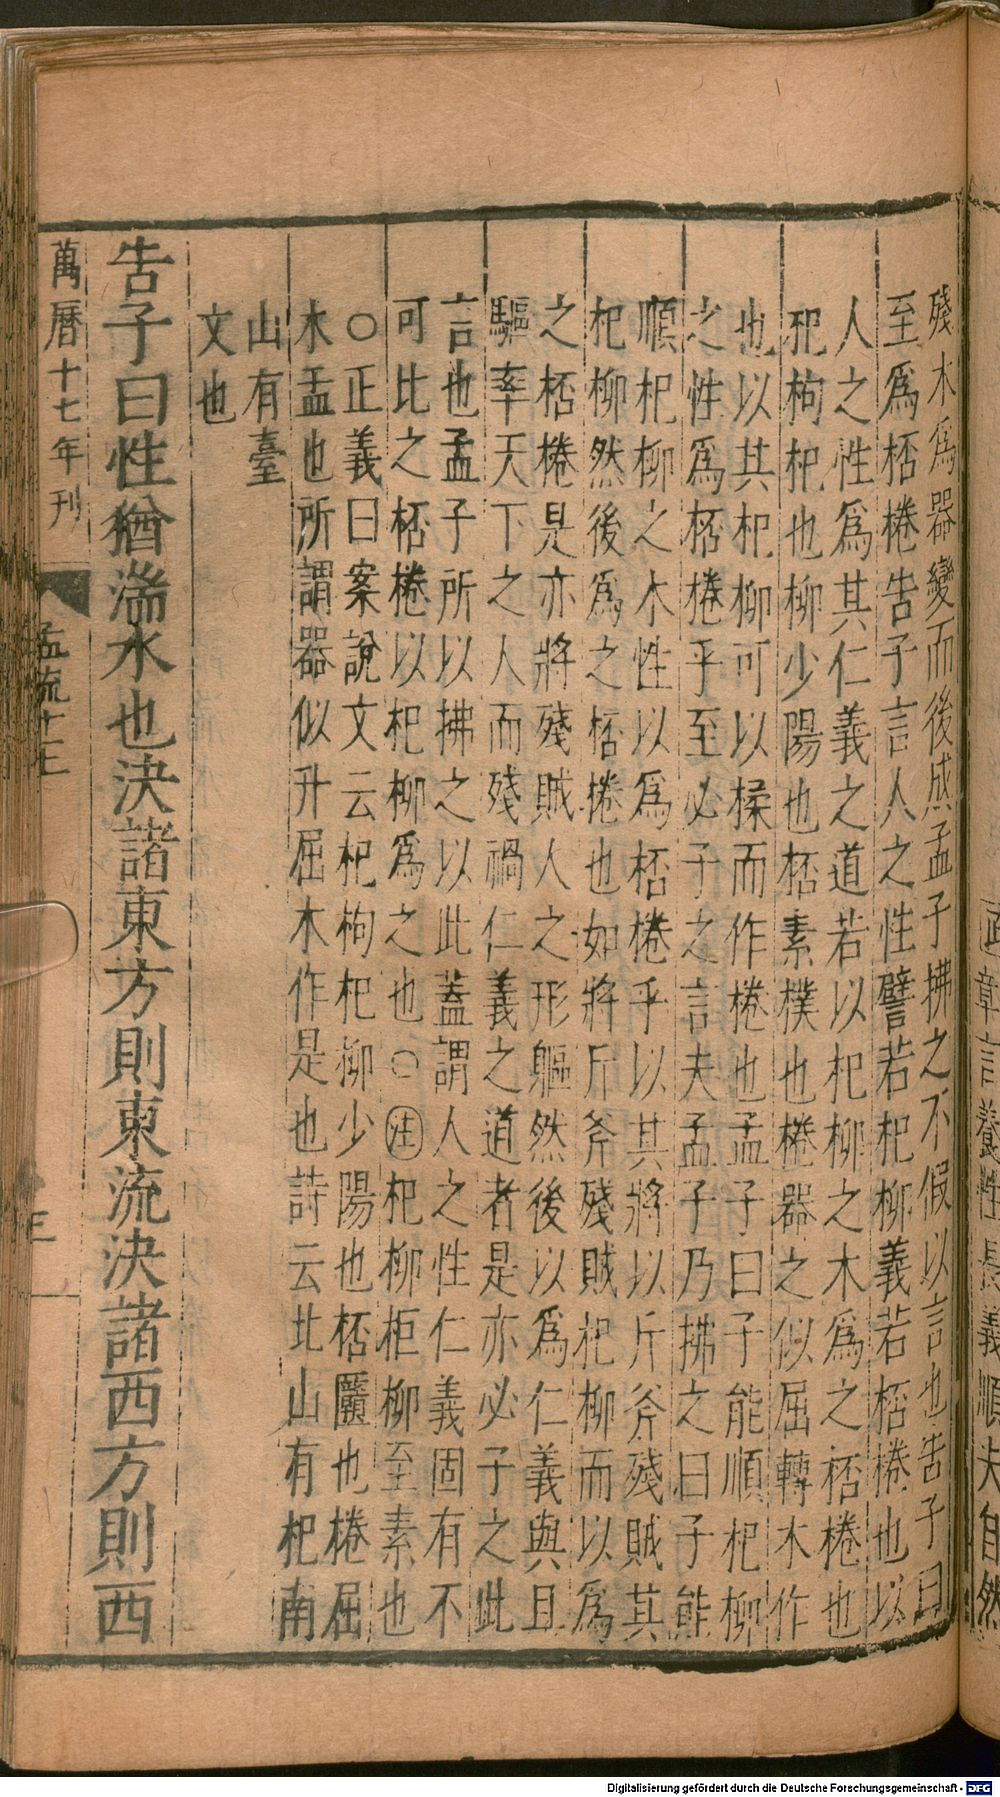 章言養性長義順夫自然
殘木爲器變而後成孟子拂之不假以言也告子曰
至爲桮棬告子言人之性譬若杞柳義若桮棬也以
人之性爲其仁義之道若以杞柳之木爲之桮棬也
杞枸杞也柳少陽也桮素樸也棬器之似屈轉木作
也以其杞柳可以揉而作棬也孟子曰子能順杞柳
之性爲桮棬乎至必子之言夫孟子乃拂之曰子能
順杞柳之木性以爲桮棬乎以其將以斤斧殘賊其
杞柳然後爲之桮棬也如將斤斧殘賊杞柳而以爲
之桮棬是亦將殘賊人之形軀然後以爲仁義與且
驅率天下之人而殘禍仁義之道者是亦必子之此
言也孟子所以拂之以此蓋謂人之性仁義固有不
可比之桮棬以杞柳爲之也○注杞柳柜柳至素也
○正義曰案說文云杞枸杞柳少陽也桮㔶也棬屈
木盂也所謂器似升屈木作是也詩云北山有杞南
山有臺
文也
告子曰性猶湍水也決諸東方則東流決諸西方則西
萬曆十七年刊
孟流十一上
三
Digitalisierung gefördert durch die Deutsche Forschungsgemeinschaft - DFG